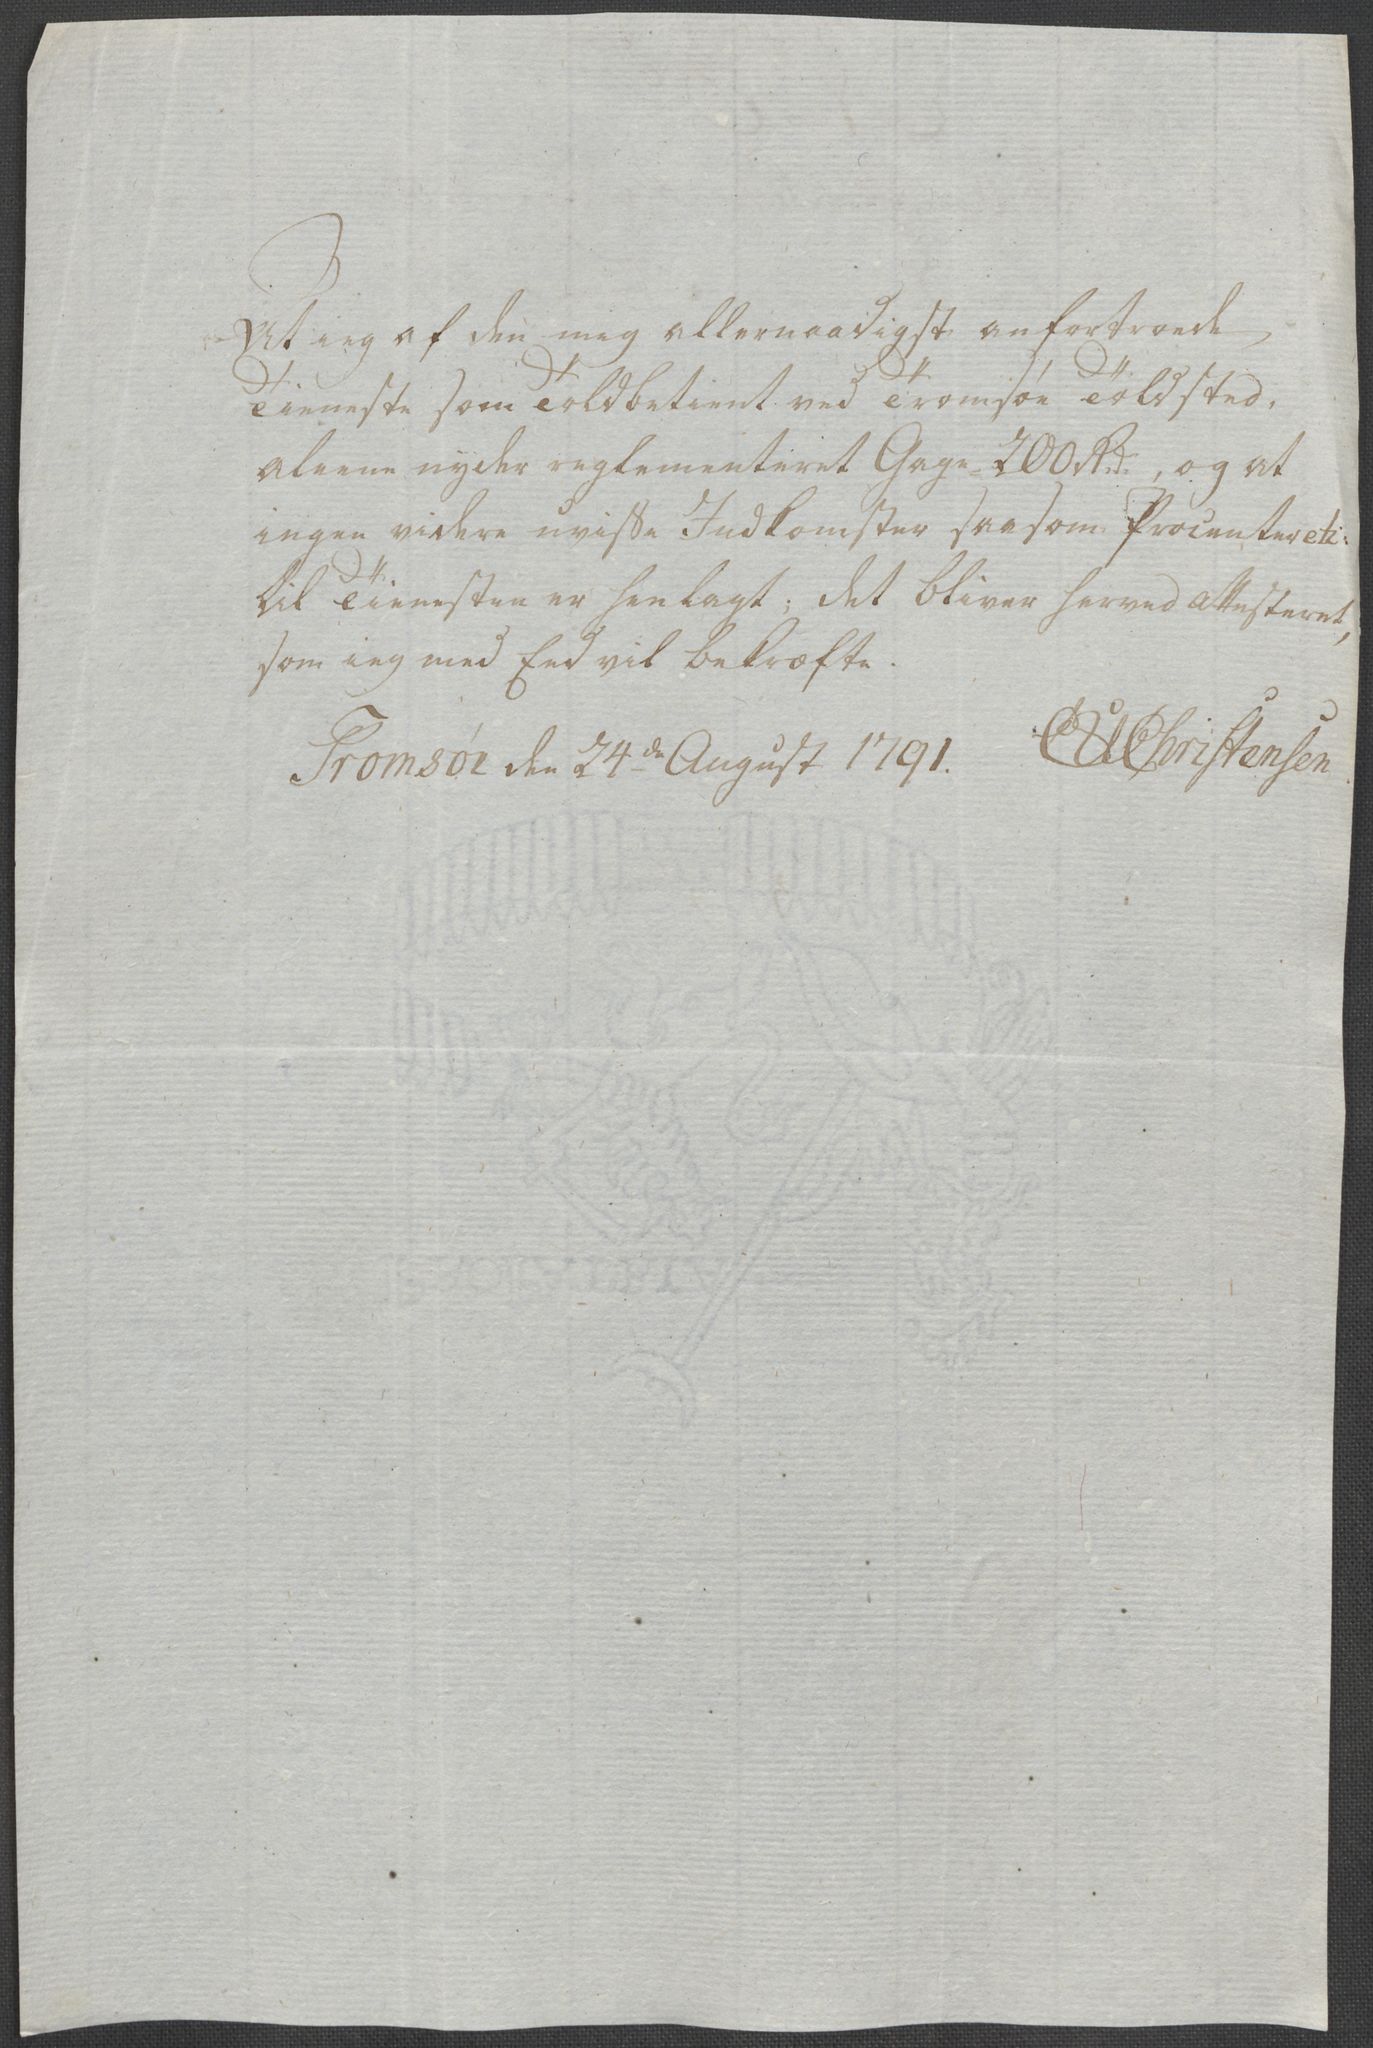 At ieg af den mig allernaadigst anfortroede
Tieneste som Toldbetient ved Tromsöe Toldsted,
aleene nyder reglementeret Gage 200 Rd., og at
ingen videre uvisse Indkomster saasom Procenter etc:
til Tienesten er henlagt; det bliver herved attesteret,
som ieg med Eed vil bekræfte.
Tromsöe den 24de August 1791. Christensen